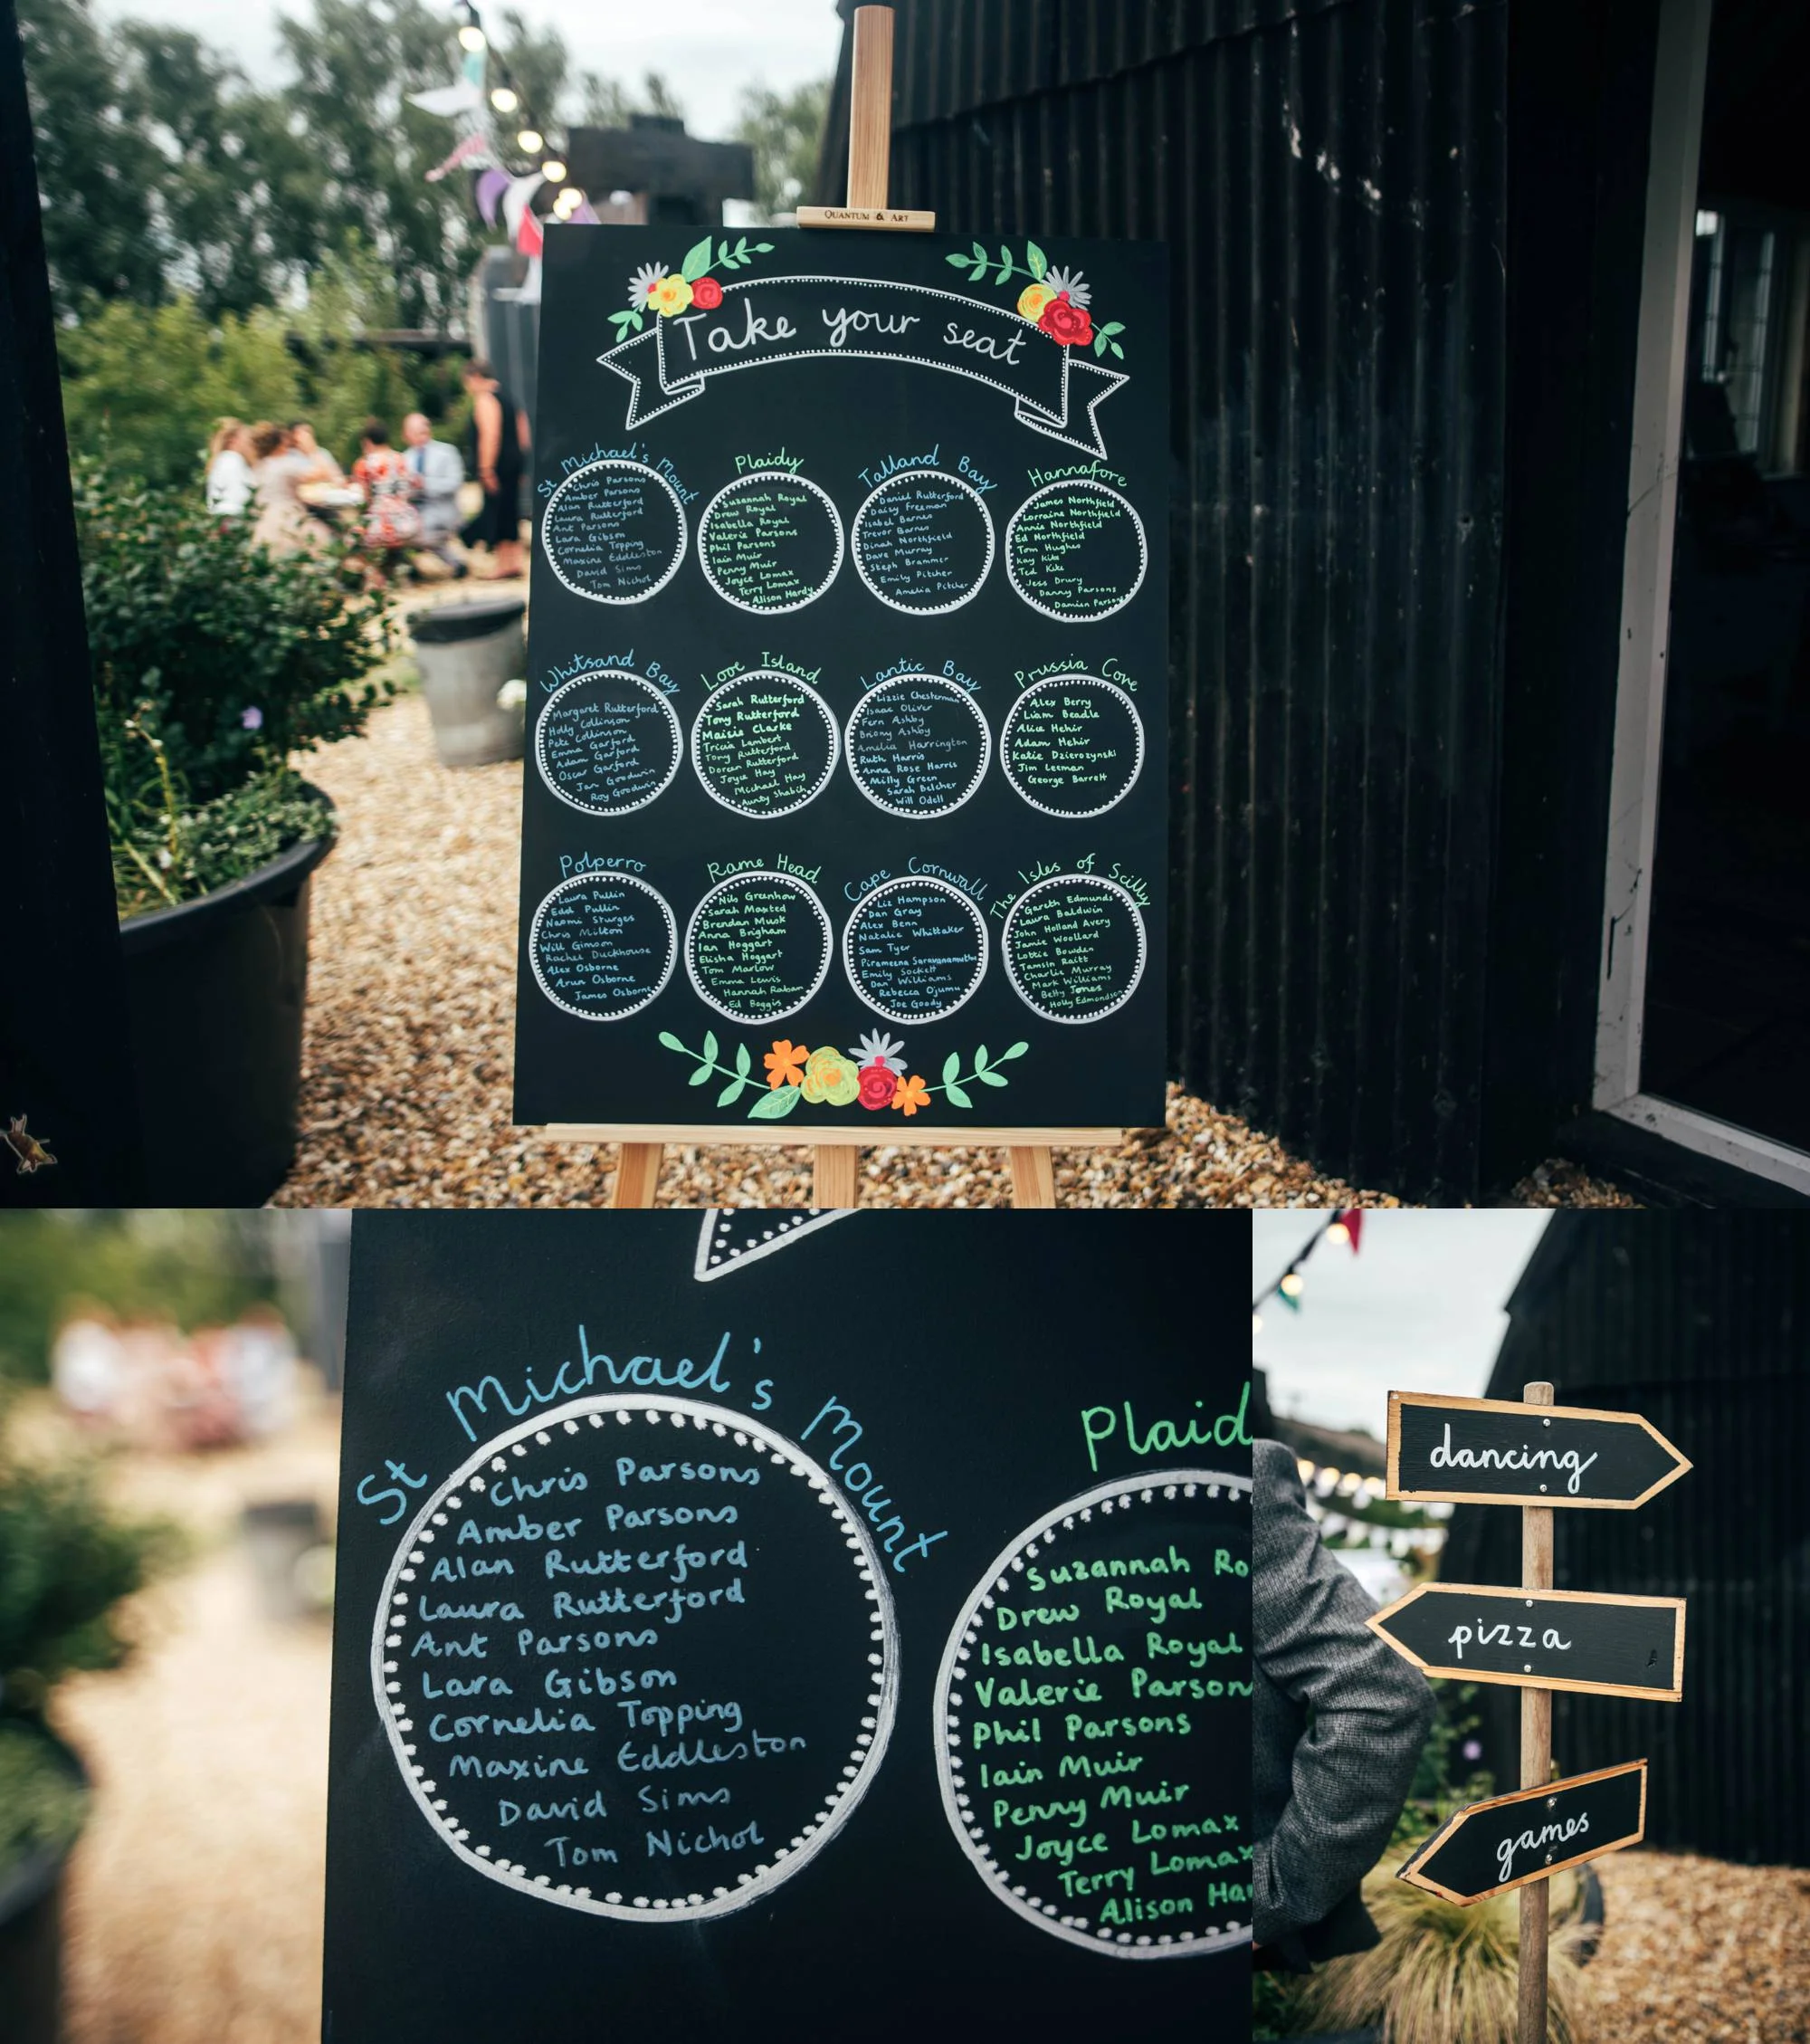 QUANTUM & ART
Take your seat
St Michael's Mount
Chris Parsons
Amber Parsons
Alan Rutterford
Laura Rutterford
Ant Parsons
Lara Gibson
Cornelia Topping
Maxine Eddleston
David Sims
Tom Nichol
Plaidy
Suzannah Royal
Drew Royal
Isabella Royal
Valerie Parsons
Phil Parsons
Iain Muir
Penny Muir
Joyce Lomax
Terry Lomax
Alison Hardy
Talland Bay
Daniel Rutterford
Daisy Freeman
Isabel Barnes
Trevor Barnes
Dinah Northfield
Dave Murray
Steph Brammer
Emily Pitcher
Amelia Pitcher
Hannafore
James Northfield
Lorraine Northfield
Annie Northfield
Ed Northfield
Tom Hughes
Kay Kite
Ted Kite
Jess Drury
Danny Parsons
Damian Parsons
Whitsand Bay
Margaret Rutterford
Holly Collinson
Pete Collinson
Emma Garford
Adam Garford
Oscar Garford
Jan Goodwin
Roy Goodwin
Looe Island
Sarah Rutterford
Tony Rutterford
Maisie Clarke
Tricia Lambert
Tony Rutterford
Doreen Rutterford
Joyce Hay
Michael Hay
Aunty
Lantic Bay
Lizzie Chesterman
Isaac Oliver
Fern Ashby
Briony Ashby
Amelia Harrington
Ruth Harris
Anna Rose Harris
Milly Green
Sarah Belcher
Will Odell
Prussia Cove
Alex Berry
Liam Beadle
Alice Hehir
Adam Hehir
Katie Dzierozynski
Jim Leeman
George Barrett
Polperro
Laura Pullin
Edd Pullin
Naomi Sturges
Chris Milton
Will Gimson
Rachel Duckhouse
Alex Osborne
Arun Osborne
James Osborne
Rame Head
Nils Greenhow
Sarah Maxted
Brendan Musk
Anna Brigham
Ian Hoggart
Elisha Hoggart
Tom Marlow
Emma Lewis
Hannah Raban
Ed Boggis
Cape Cornwall
Liz Hampson
Dan Gray
Alex Benn
Natalie Whittaker
Sam Tyer
Pirameena
Emily Sockett
Dan Williams
Rebecca Ojumu
Joe Goody
The Isles of Scilly
Gareth Edmunds
Laura Baldwin
John Holland Avery
Jamie Woollard
Lottie Bowden
Tamsin Raitt
Charlie Murray
Mark Williams
Betty Jones
Holly Edmondson
St Michael's Mount
Chris Parsons
Amber Parsons
Alan Rutterford
Laura Rutterford
Ant Parsons
Lara Gibson
Cornelia Topping
Maxine Eddleston
David Sims
Tom Nichol
Plaid
Suzannah Ro
Drew Royal
Isabella Royal
Valerie Parson
Phil Parsons
Iain Muir
Penny Muir
Joyce Lomax
Terry Lomax
Alison Har
dancing
pizza
games